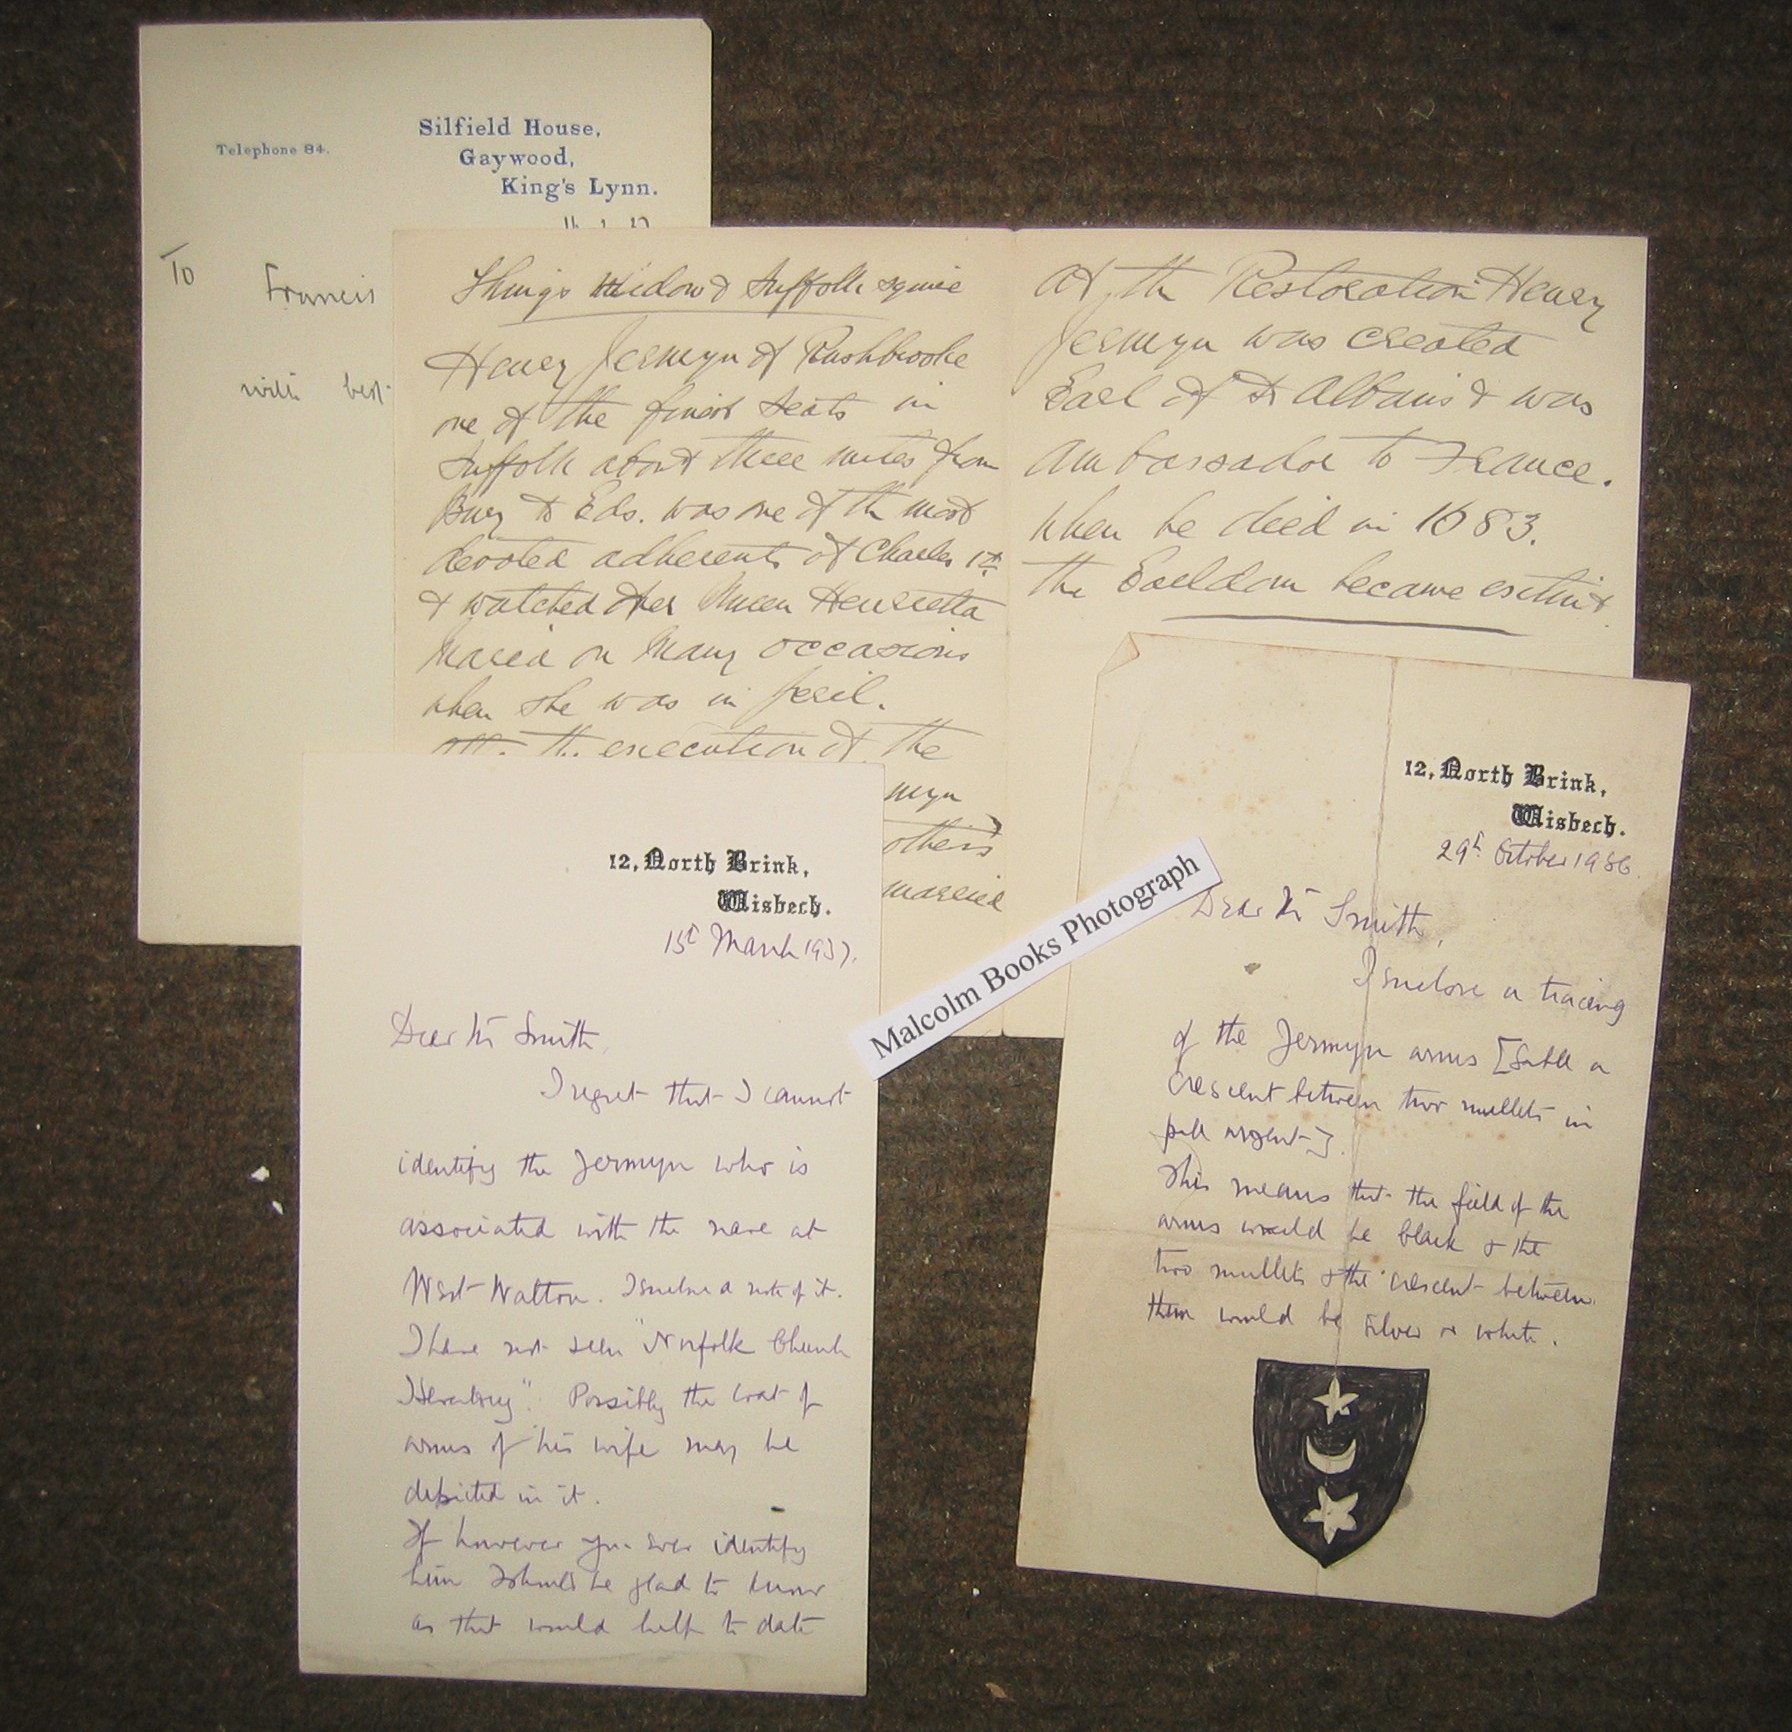 Telephone 84.
Silfield House,
Gaywood,
King's Lynn.
To Francis
with best
Kings Widow & Suffolk squire
Henry Jermyn of Rushbrooke
one of the finest seats in
Suffolk about three miles from
Bury St Eds. was one of the most
devoted adherents of Charles 1st
& watched over Queen Henrietta
Maria on many occasions
when she was in peril.
the execution of the
myn
others
married
At the Restoration Henry
Jermyn was created
Earl of St Albans & was
ambassador to France.
When he died in 1683.
the Earldom became extinct.
12, North Brink,
Wisbech.
15th March 1937.
Dear Mr Smith,
I regret that I cannot
identify the Jermyn who is
associated with the nave at
West Walton. I enclose a note of it.
I have not seen "Norfolk Church
Heraldry". Possibly the coat of
arms of his wife may be
depicted in it.
If however you ever identify
him I should be glad to know
as that would help to date
Malcolm Books Photograph
12, North Brink,
Wisbech.
29th October 1936.
Dear Mr Smith,
I enclose a tracing
of the Jermyn arms [Sable a
crescent between two mullets in
pale argent].
This means that the field of the
arms would be black & the
two mullets & the crescent between
them would be silver or white.